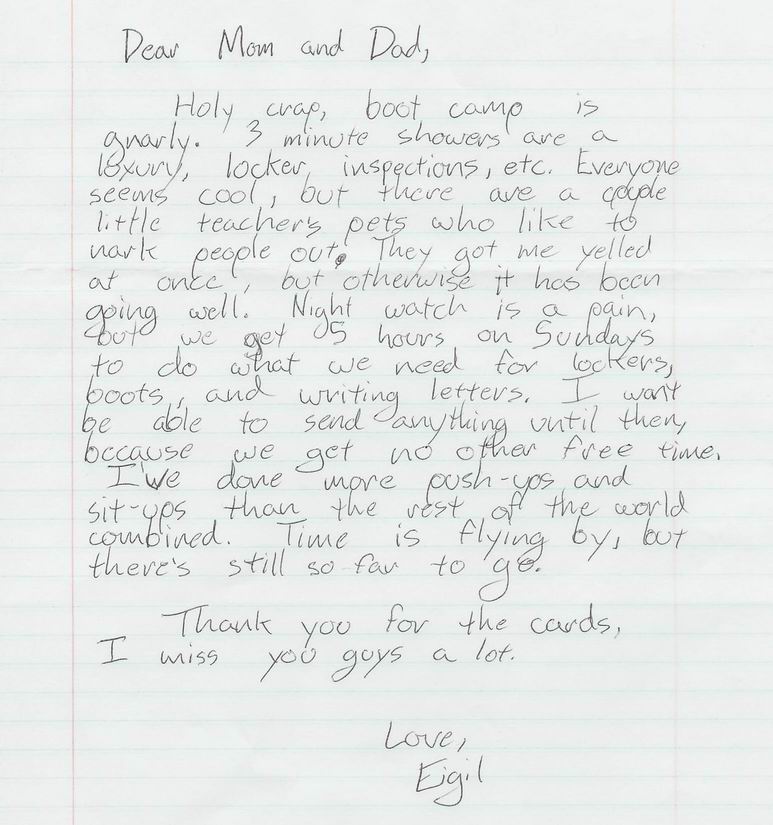 Dear Mom and Dad,
Holy crap, boot camp is
gnarly. 3 minute showers are a
luxury, locker inspections, etc. Everyone
seems cool, but there are a couple
little teacher's pets who like to
nark people out. They got me yelled
at once, but otherwise it has been
going well. Night watch is a pain,
but we get 5 hours on Sundays
to do what we need for lockers,
boots, and writing letters. I won't
be able to send anything until then,
because we get no other free time.
I've done more push-ups and
sit-ups than the rest of the world
combined. Time is flying by, but
there's still so far to go.
Thank you for the cards,
I miss you guys a lot.
Love,
Eigil